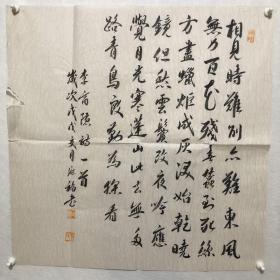 相見時難別亦難東風
無力百花殘春蠶到死絲
方盡蠟炬成灰淚始乾曉
鏡但愁雲鬢改夜吟應
覺月光寒蓬山此去無多
路青鳥殷勤為探看
李商隱詩一首
歲次戊戌